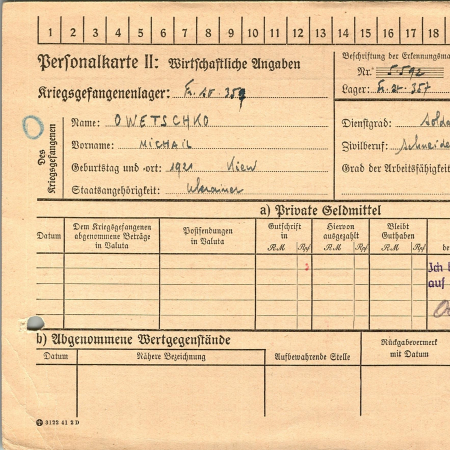 1 2 3 4 5 6 7 8 9 10 11 12 13 14 15 16 17 18
Personalkarte II: Wirtschaftliche Angaben
Beschriftung der Erkennungsma
Nr. 5592
Kriegsgefangenenlager:
Lager: 357
Des Kriegsgefangenen
Name: OWETSCHKO
Dienstgrad: Solda
Vorname: MICHAIL
Zivilberuf: Schneide
Geburtstag und -ort: 1921 Kiew
Grad der Arbeitsfähigkeit
Staatsangehörigkeit: Ukrainer
a) Private Geldmittel
Datum
Dem Kriegsgefangenen abgenommene Beträge in Valuta
Postsendungen in Valuta
Gutschrift in
RM Rpf
Hiervon ausgezahlt
RM Rpf
Bleibt Guthaben
RM Rpf
be
Ich b
auf
b) Abgenommene Wertgegenstände
Datum
Nähere Bezeichnung
Aufbewahrende Stelle
Rückgabevermerk mit Datum
3122 41 2 D